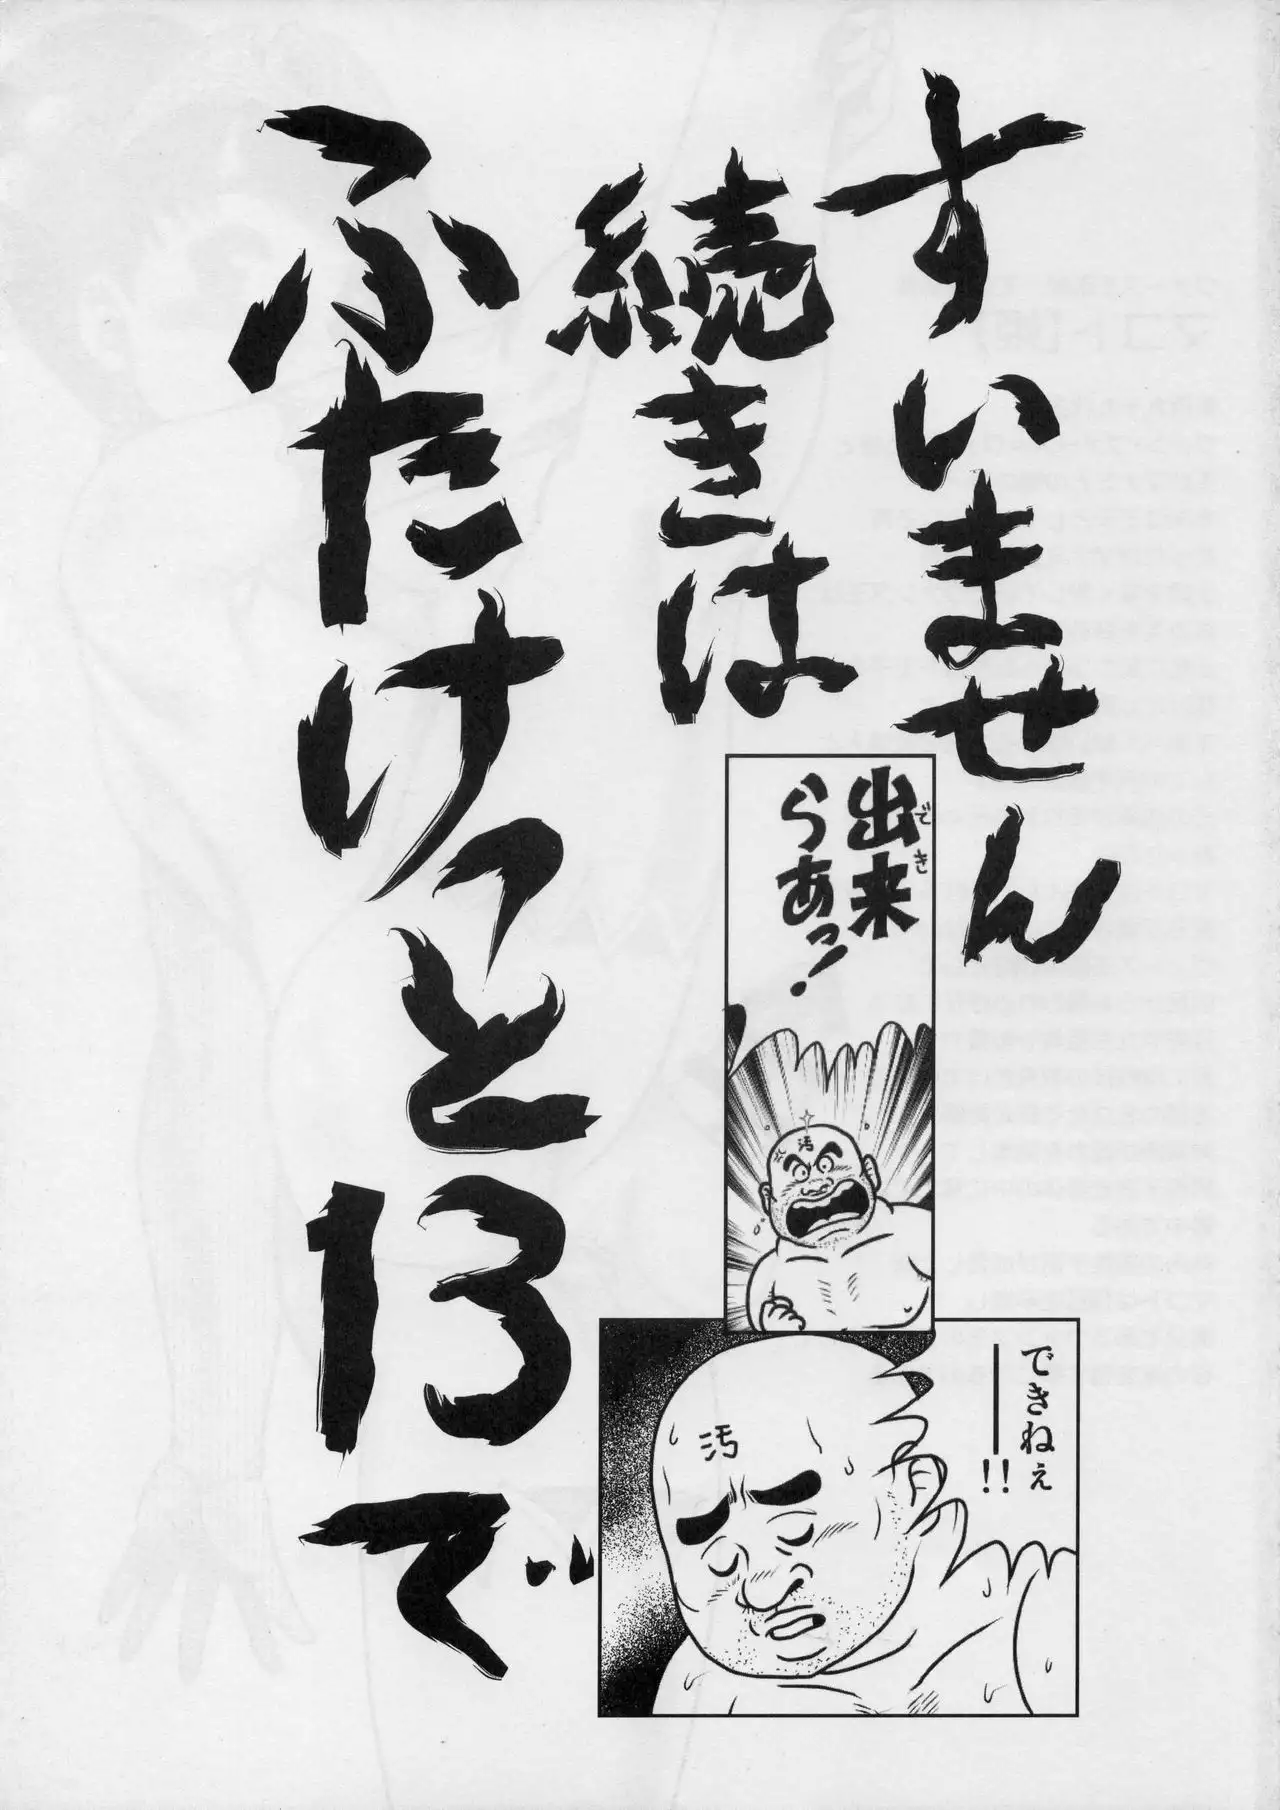 すいません
続きは
ふたけっと13で
出来
らあっ!
でき
できねぇ
――!!
汚
汚